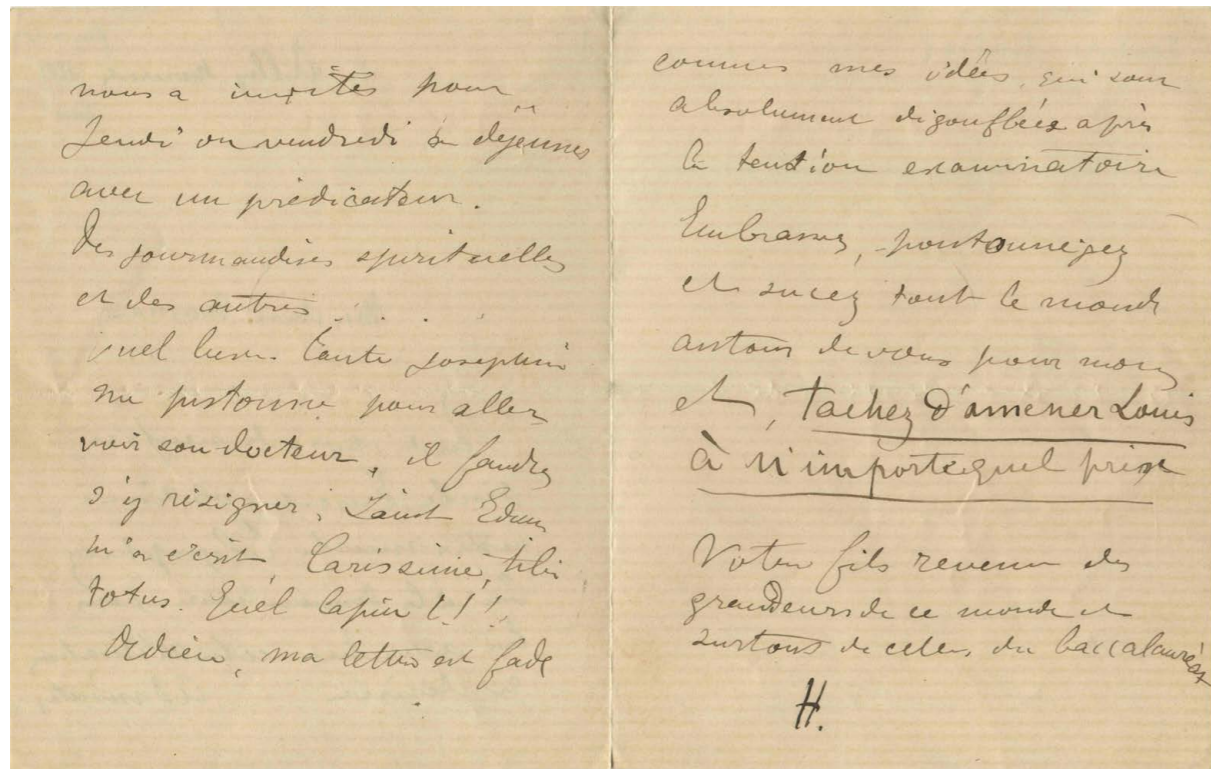 nous a invités pour
Jeudi ou vendredi à déjeuner
avec un prédicateur.
Des gourmandises spirituelles
et des autres . . . .
tante Josephine
me pistonne pour aller
voir son docteur, il faudra
s'y résigner. Saint Edme
m'a écrit Carissime, tibi
totus. Quel lapin !!!
ma lettre est fade
comme mes idées, qui sont
absolument digonflées après
la tention examinatoire
Embrassez,
et sucez tout le monde
autour de vous pour moi
et, tachez d'amener Louis
à n'importe quel prix
Votre fils revenu des
grandeurs de ce monde et
surtout de celles du baccalauréat
H.